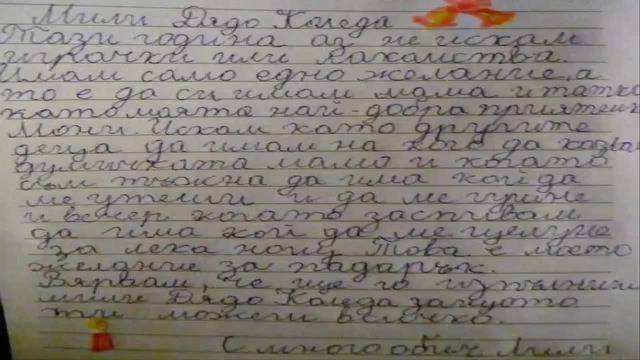 Мили Дядо Коледа
Тази година аз не искам
играчки или лакомства.
Имам само едно желание, а
то е да си имам мама и татко
като моята най-добра приятелк
Мони. Искам като другите
деца да имам на кого да казва
думичката мамо и когато
съм тъжна да има кой да
ме утеши и да ме гушне
и вечер когато заспивам
да има кой да ме целуне
за лека нощ. Това е моето
желание за подарък.
Вярвам, че ще го изпълниш
мили Дядо Коледа защото
ти можеш всичко.
С много обич Лили